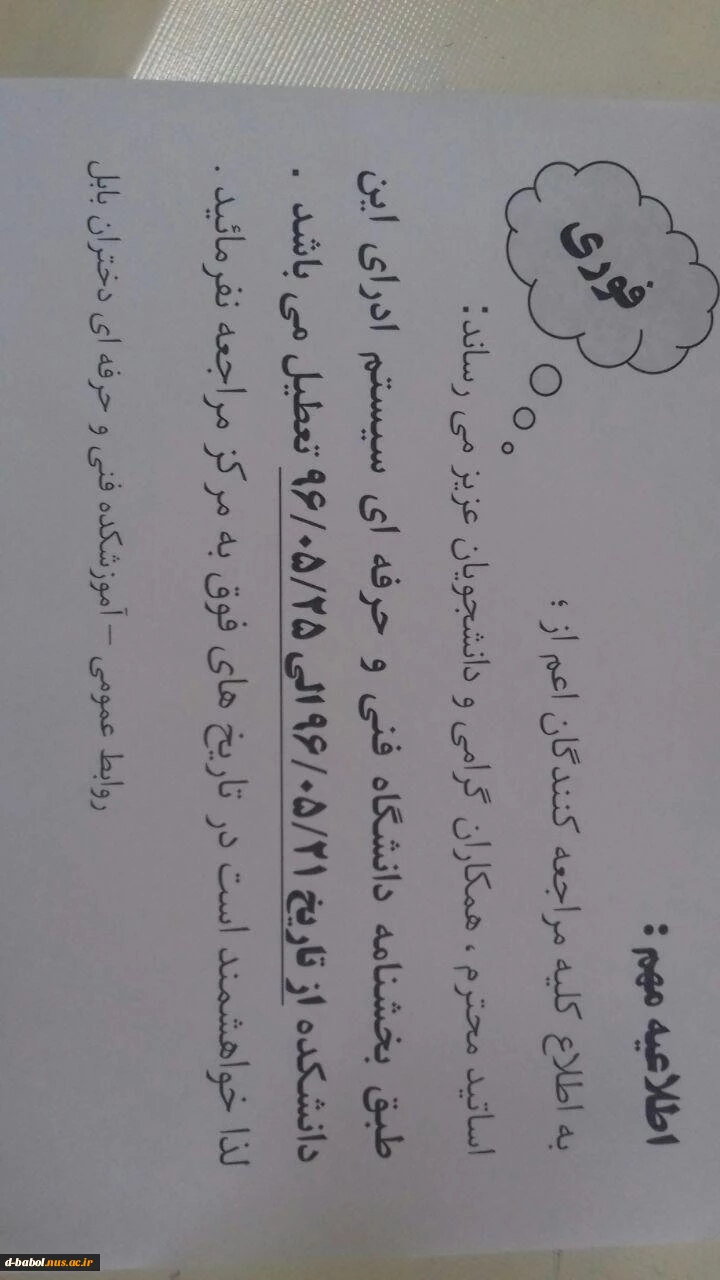 فوری
اطلاعیه مهم :
به اطلاع کلیه مراجعه کنندگان اعم از ؛
اساتید محترم ، همکاران گرامی و دانشجویان عزیز می رساند:
طبق بخشنامه دانشگاه فنی و حرفه ای سیستم ادرای این
دانشکده از تاریخ ۹۶/۰۵/۲۱ الی ۹۶/۰۵/۲۵ تعطیل می باشد .
لذا خواهشمند است در تاریخ های فوق به مرکز مراجعه نفرمائید .
روابط عمومی – آموزشکده فنی و حرفه ای دختران بابل
d-babol.nus.ac.ir